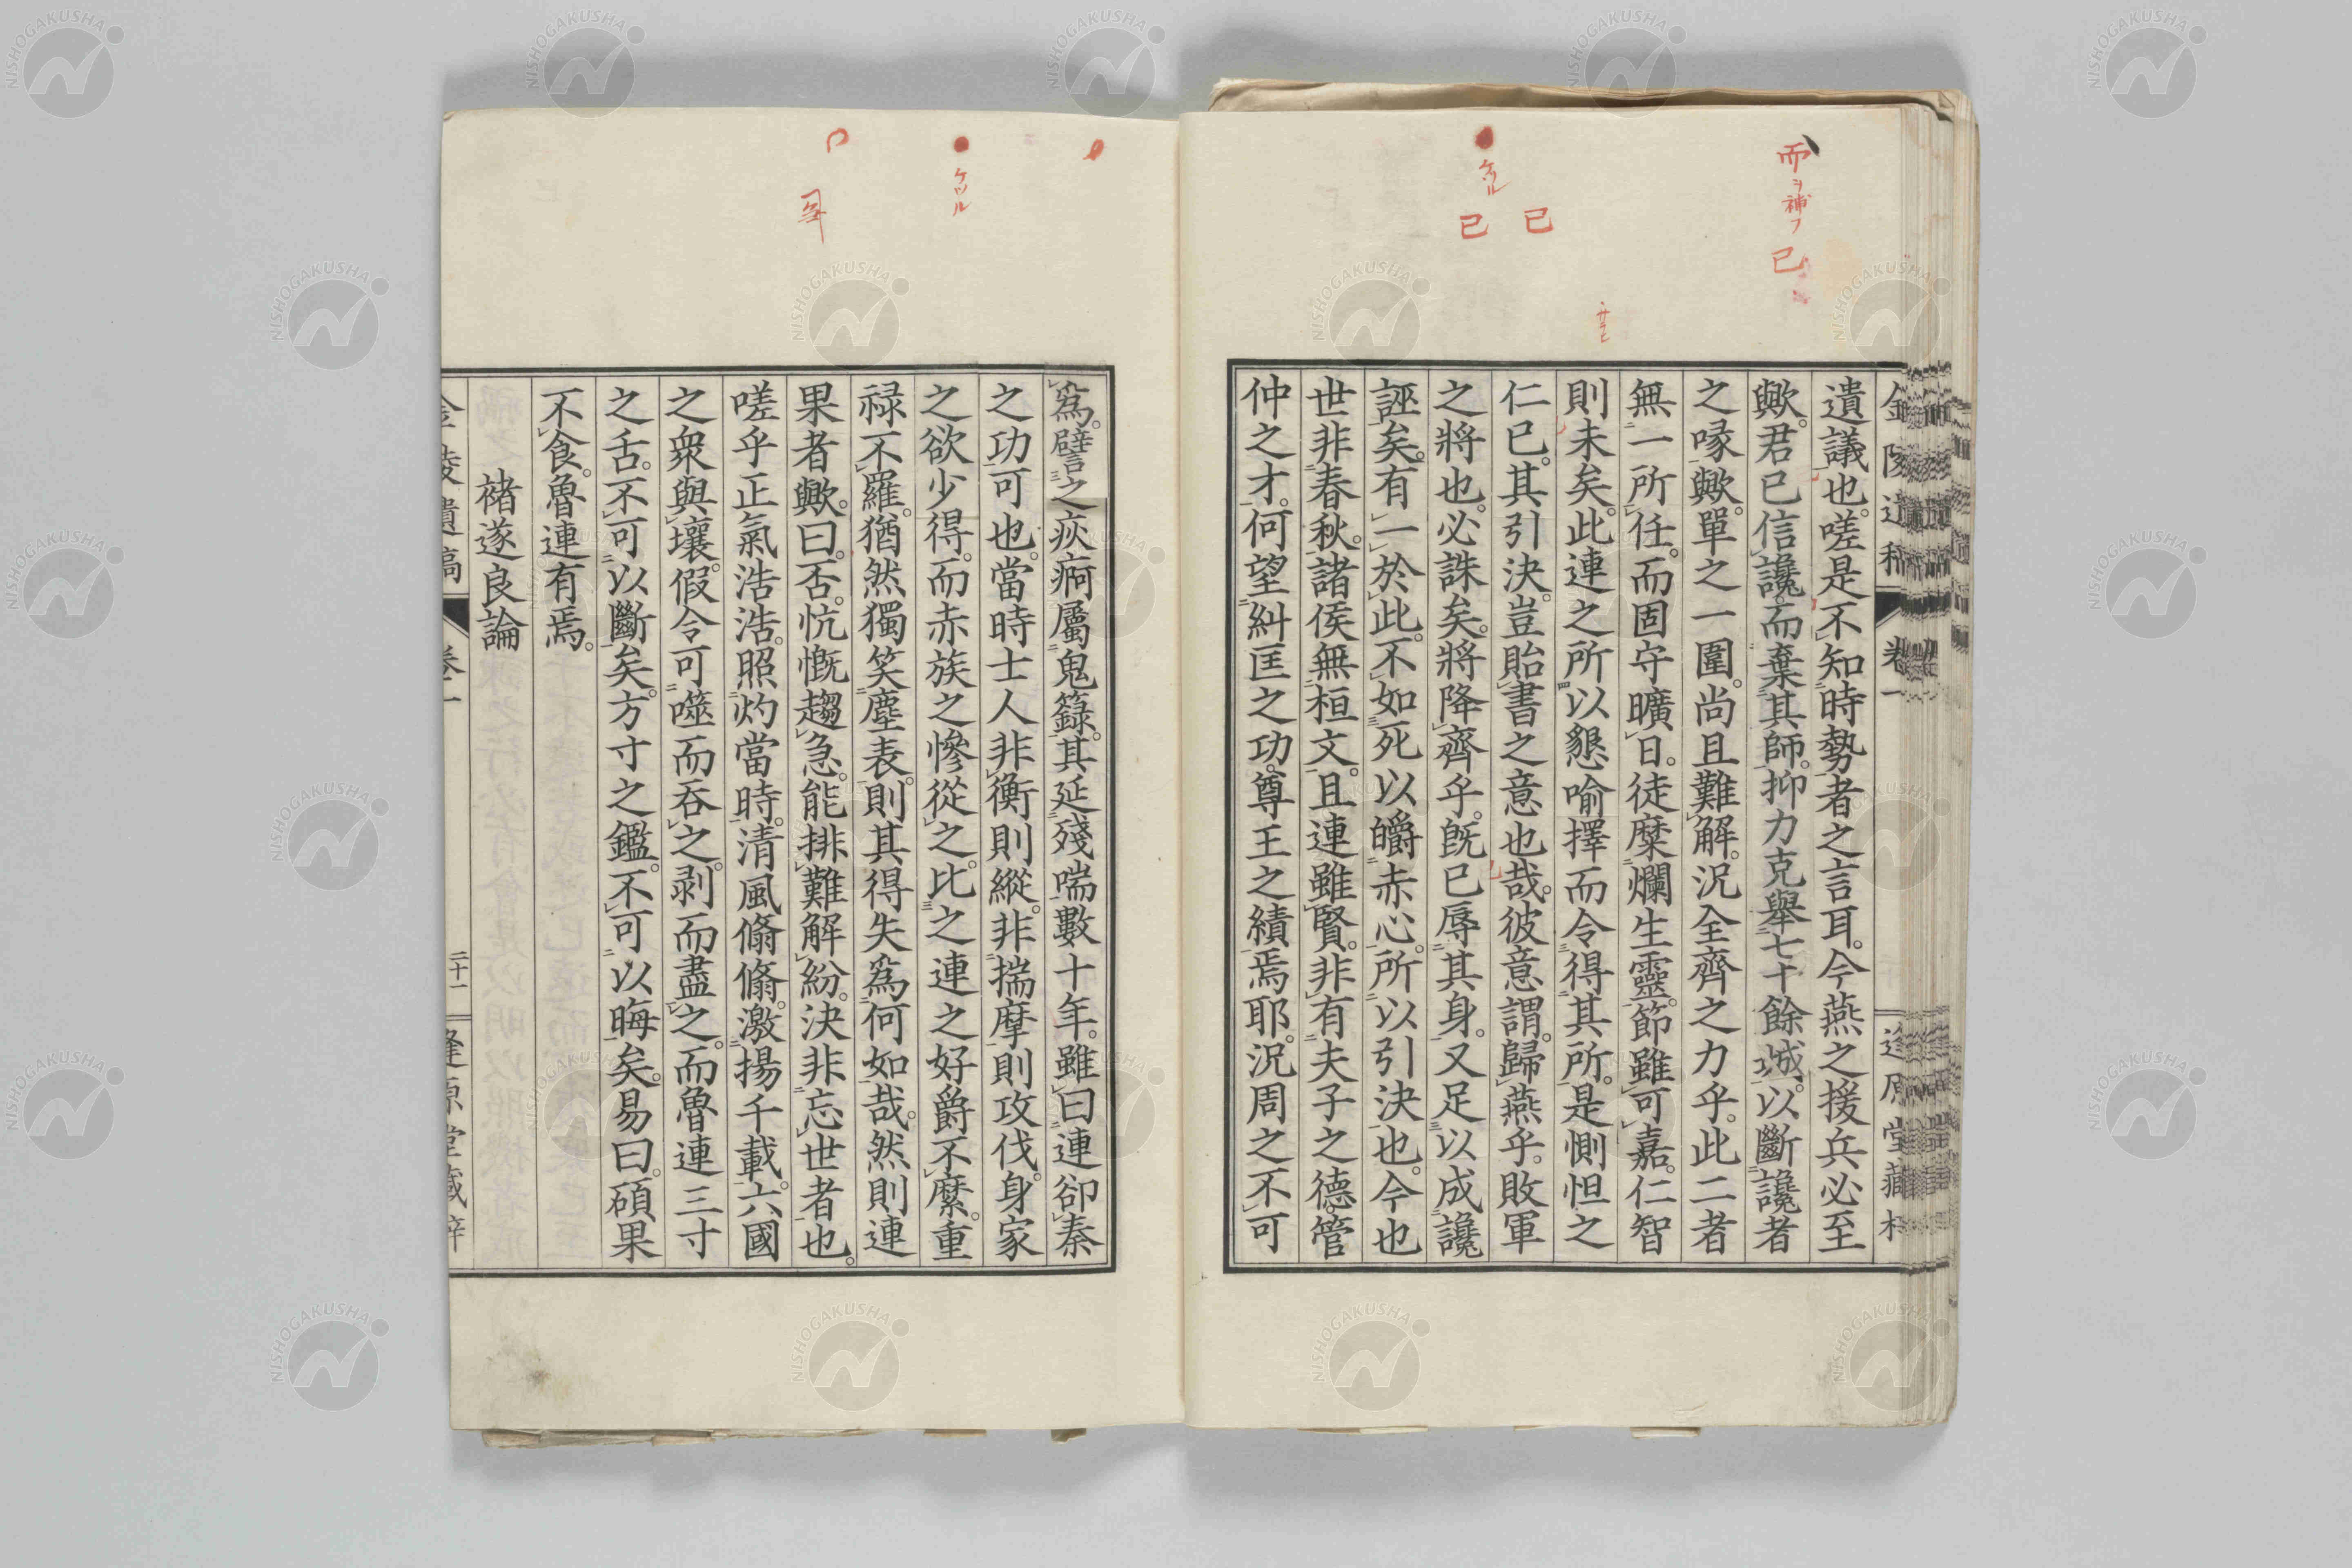 而ヲ補フ
已
已
已
ケツル
遺議也。嗟是不知時勢者之言耳。今燕之援兵必至
歟。君已信讒。而棄其師。抑力克舉七十餘城。以斷讒者
之喙歟。單之一圍。尚且難解。況全齊之力乎。此二者
無一所任。而固守曠日。徒糜爛生靈。節雖可嘉。仁智
則未矣。此連之所以懇喻擇而令得其所。是惻怛之
仁已。其引決。豈貽書之意也哉。彼意謂。歸燕乎。敗軍
之將也。必誅矣。將降齊乎。既已辱其身。又足以成讒
誣矣。有一於此。不如死以皭赤心。所以引決也。今也
世非春秋。諸侯無桓文。且連雖賢。非有夫子之德。管
仲之才。何望糾匡之功。尊王之績焉耶。況周之不可
ケツル
為。譬之疢痾屬鬼籙。其延殘喘數十年。雖曰連卻秦
之功可也。當時士人非衡則縱。非揣摩則攻伐。身家
之欲少得。而赤族之慘從之。比之連之好爵不縻。重
祿不羅。猶然獨笑塵表。則其得失為何如哉。然則連
果者歟。曰。否。忼慨趨急。能排難解紛。決非忘世者也。
嗟乎正氣浩浩。照灼當時。清風翛翛。激揚千載。六國
之衆與壤。假令可噬而吞之。剥而盡之。而魯連三寸
之舌。不可以斷矣。方寸之鑑。不可以晦矣。易曰。碩果
不食。魯連有焉。
褚遂良論
金陵遺稿
卷一
二十一
逢原堂藏梓
NISHOGAKUSHA